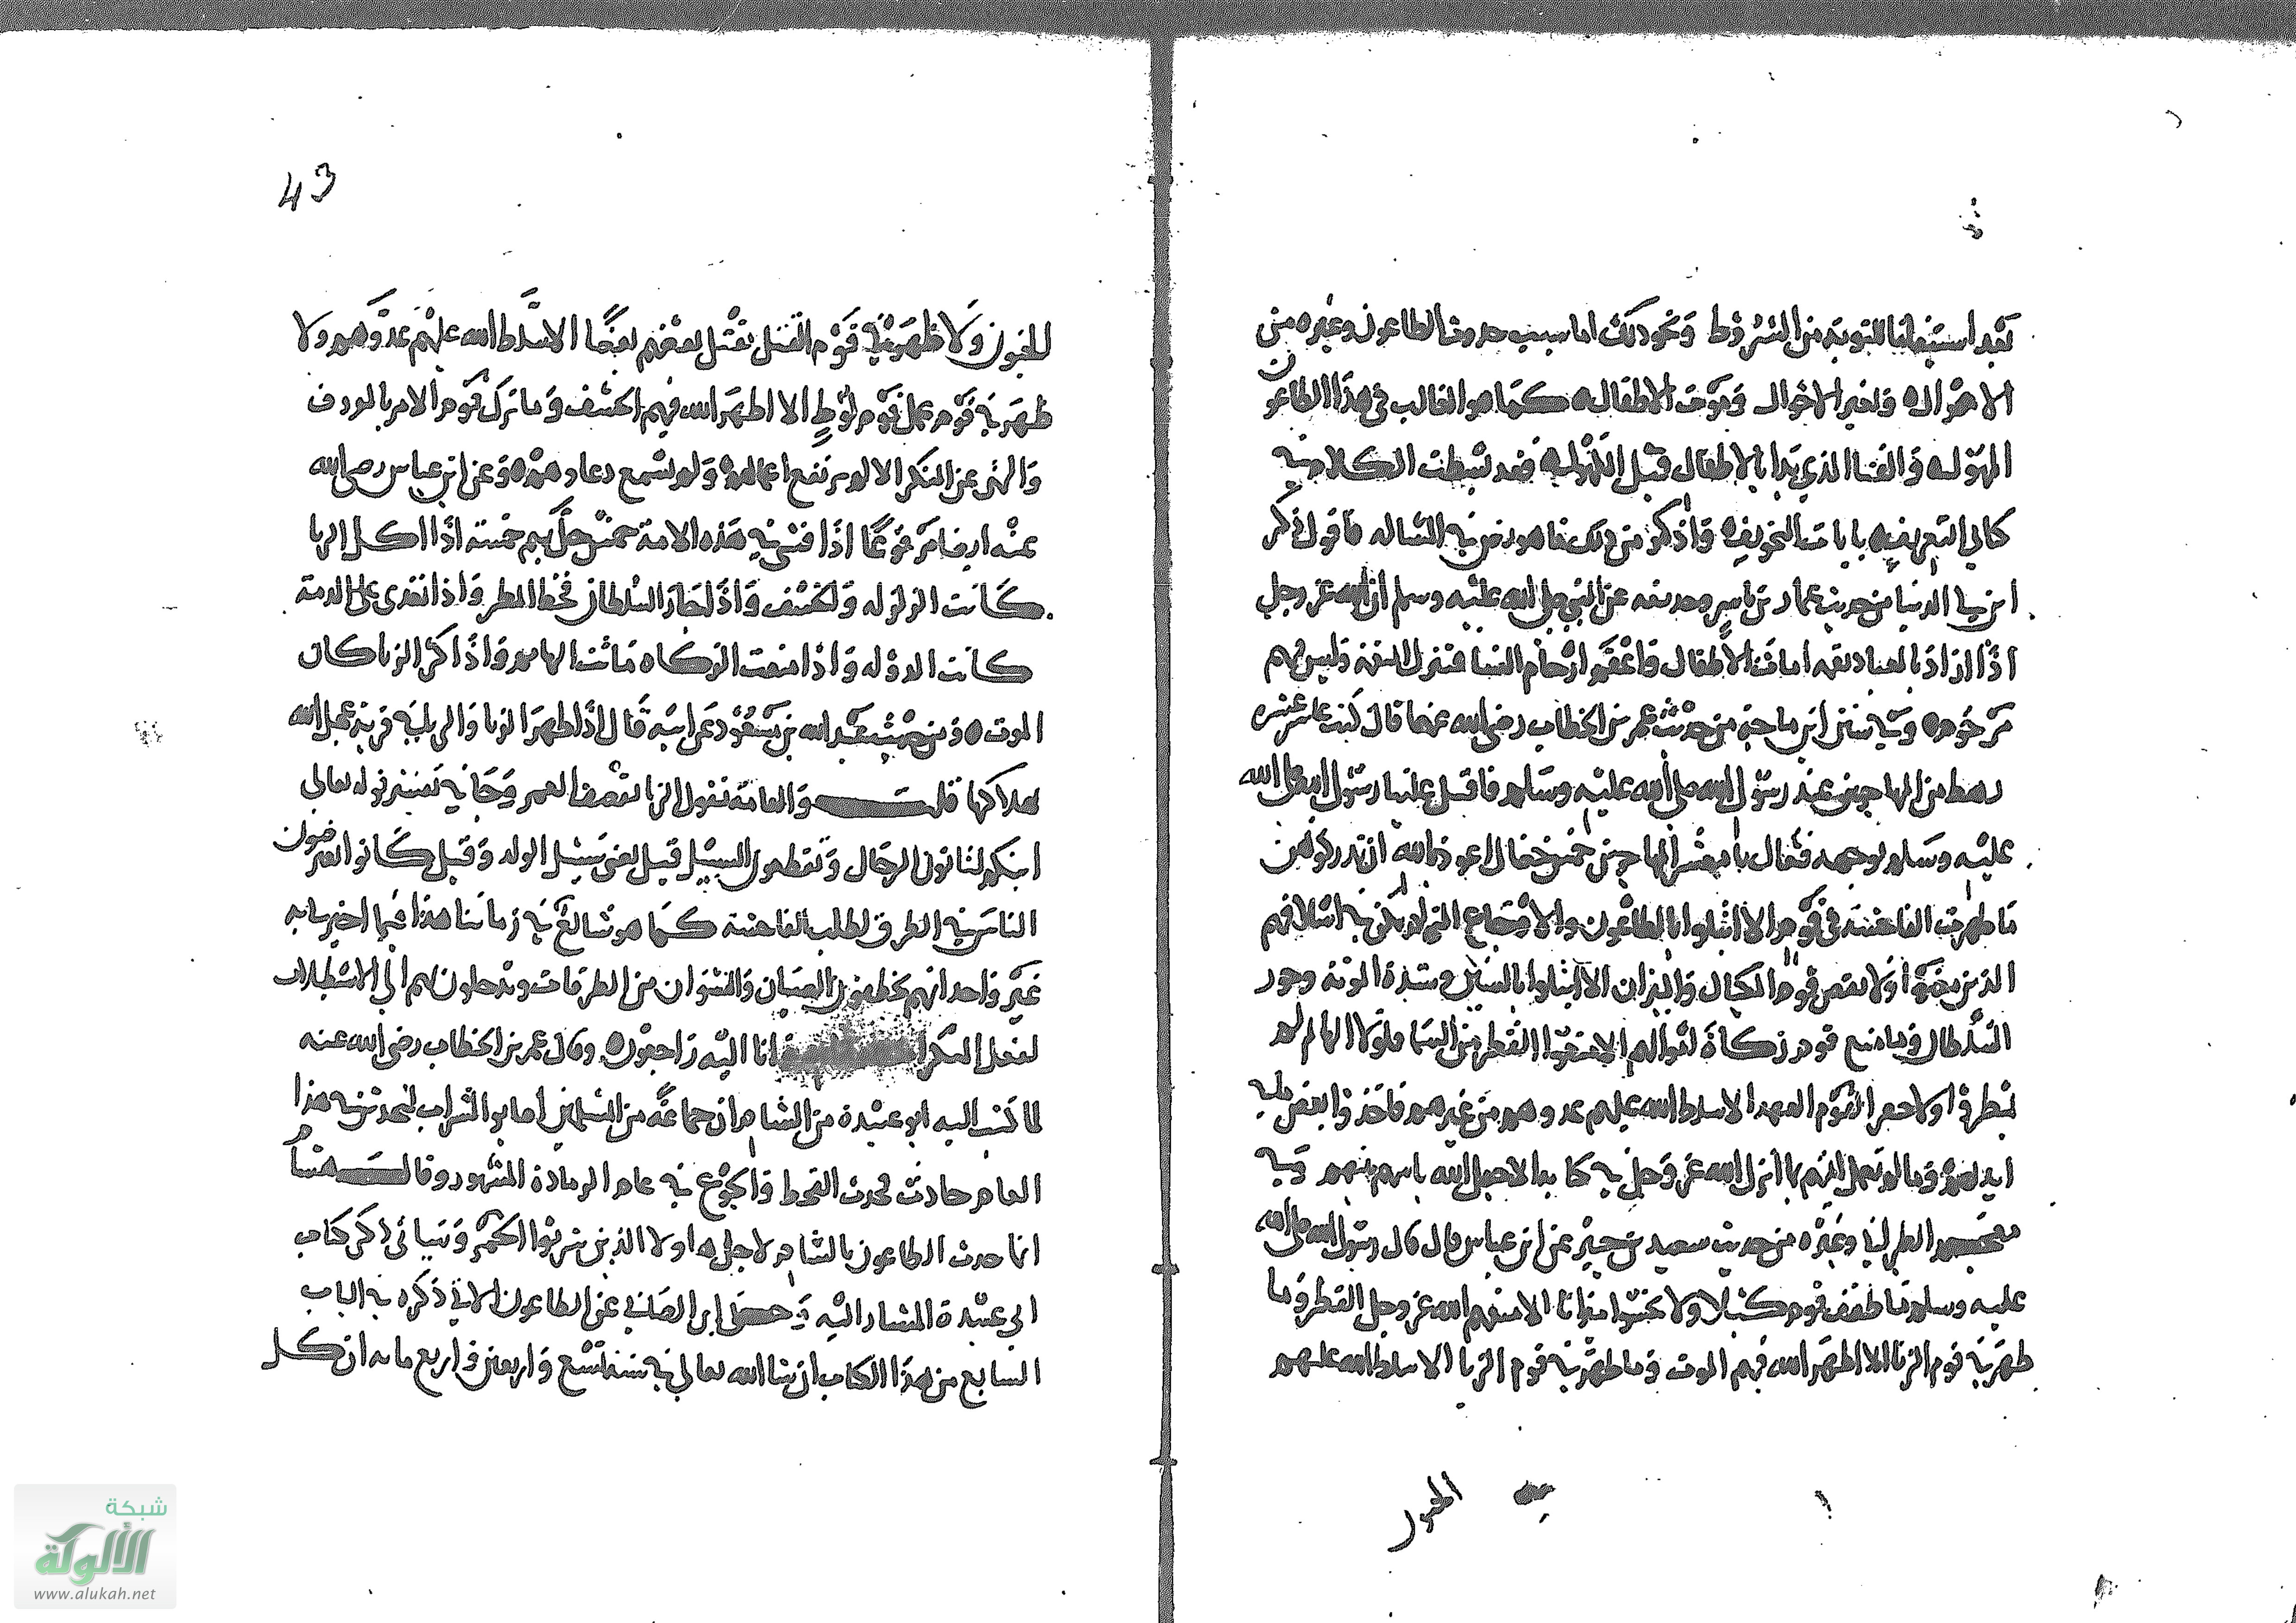 بعد استيفائنا للتوبة من الشروط ونحو ذلك اما سبب حدوث الطاعون وغيره من
الاهوال وتغير الاحوال وموت الاطفال كما هو الغالب في هذا الطاعون
المهول والفنا الذي بدا بالاطفال قبل الكهول فقد بسطت الكلام فيه
كتابي التعريف بايات التخويف واذكر من ذلك هنا في الرساله فاقول ذكر
ابن ابي الدنيا من حديث عمار بن ياسر وحذيفه عن النبي صلى الله عليه وسلم ان الله عز وجل
اذا اراد بالعباد نقمه امات الاطفال واعقم ارحام النسا فتنزل النقمة وليس فيهم
مرحوم وفي سنن ابن ماجه من حديث عمر بن الخطاب رضي الله عنهما قال كنت عاشر عشره
رهط من المهاجرين عند رسول الله صلى الله عليه وسلم فاقبل علينا رسول الله صلى الله
عليه وسلم بوجهه فقال يا معشر المهاجرين خمس خصال اعوذ بالله ان تدركوهن
ما ظهرت الفاحشة في قوم الا ابتلوا بالطاعون والاوجاع التي لم تكن في اسلافهم
الذين مضوا ولا نقص قوم المكيال والميزان الا ابتلوا بالسنين وشدة المونة وجور
السلطان وما منع قوم زكاة اموالهم الا منعوا القطر من السما فلولا البهايم لم
يمطروا ولا خفر قوم العهد الا سلط الله عليهم عدوهم من غيرهم فاخذوا بعض ما في
ايديهم وما لم تعمل ايمتهم بما انزل الله عز وجل في كتابه الا جعل الله باسهم بينهم وفي
معجم الطبراني وغيره من حديث سعيد بن جبير عن ابن عباس قال قال رسول الله صلى الله
عليه وسلم ما طفف قوم كيلا ولا بخسوا ميزانا الا منعهم الله عز وجل القطر وما
ظهر في قوم الزنا الا اظهر الله فيهم الموت وما ظهر في قوم الربا الا سلط الله عليهم
43
الجنون ولا ظهر في قوم القتل يقتل بعضهم بعضا الا سلط الله عليهم عدوهم ولا
ظهر في قوم عمل قوم لوط الا اظهر الله فيهم الخسف وما ترك قوم الامر بالمعروف
والنهي عن المنكر الا لم ترتفع اعمالهم ولم يسمع دعاوهم وعن ابن عباس رضي الله
عنه ايضا مرفوعا اذا فشى في هذه الامة خمس حل بهم خمسة اذا اكل الربا
كانت الزلزله والخسف واذا جار السلطان قحط المطر واذا تعدى على الذمة
كانت الدوله واذا منعت الزكاه ماتت البهايم واذا كثر الزنا كان
الموت ومن حديث عبد الله بن مسعود عن ابيه قال اذا ظهر الزنا والربا في قرية عجل الله
هلاكها قلت والعامة تقول الزنا يقصف العمر وجا في تفسير قوله تعالى
اينكم لتاتون الرجال وتقطعون السبيل قيل يعني سبيل الولد وقيل كانوا يعترضون
الناس في الطرق لطلب الفاحشة كما هو شائع في زماننا هذا فيما اخبرنا به
غير واحد انهم يخطفون الصبيان والنسوان من الطرقات ويدخلون بهم الى الاسطبلات
لفعل المنكر انا اليه راجعون وقال عمر بن الخطاب رضي الله عنه
لما كتب اليه ابو عبيدة من الشام ان جماعة من المسلمين اصابوا الشراب ليحدثن في هذا
العام حادث فحدث القحط والجوع في عام الرمادة المشهور وقال هشام
انما حدث الطاعون بالشام لاجل هاولا الذين شربوا الخمر وسياتي ذكر كتاب
ابي عبيدة المشار اليه وحكى ابن الصابي عن الطاعون الاتي ذكره في الباب
السابع من هذا الكتاب ان شا الله تعالى في سنة تسع واربعين واربع مايه ان كل